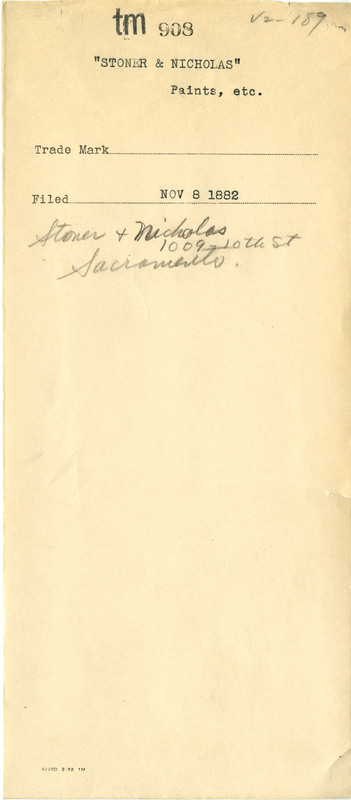 tm 908
"STONER & NICHOLAS"
Paints, etc.
Trade Mark
Filed NOV 8 1882
Stoner & Nicholas
1009-10th St
Sacramento.